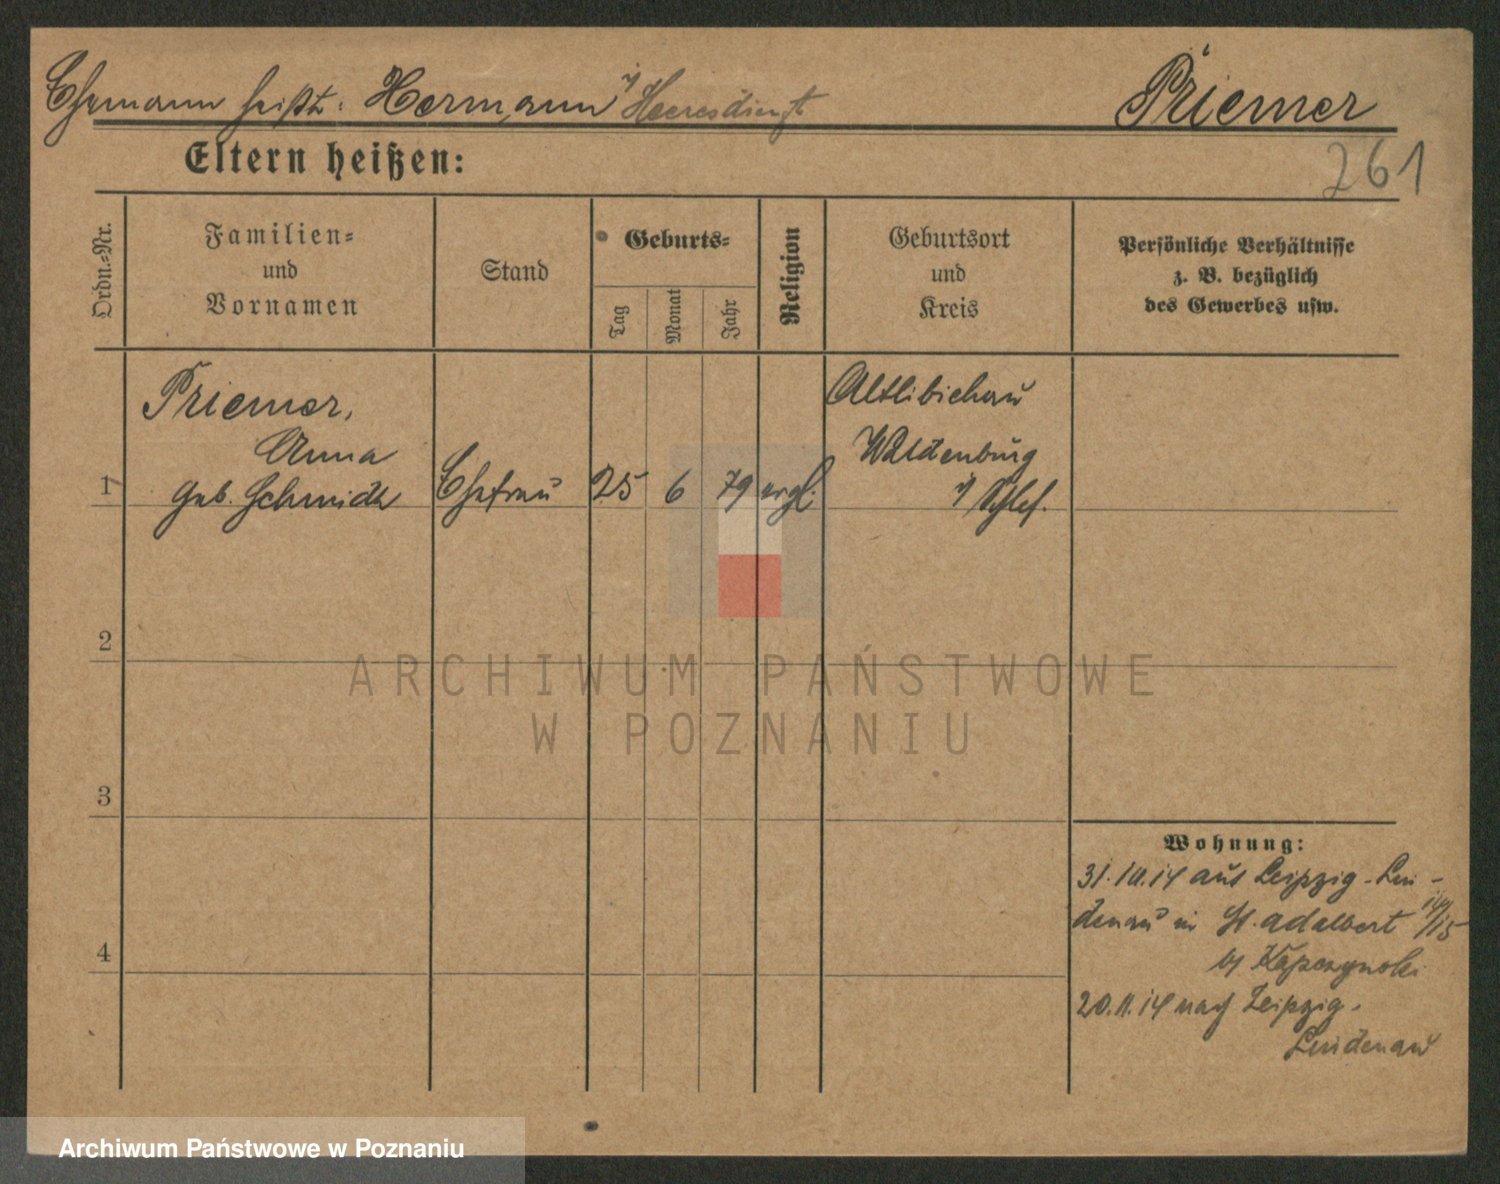 Ehemann heißt: Hermann i/ Heeresdienst Priemer
Eltern heißen:
261
Ordn.-Nr.
Familien-
und
Vornamen
Stand
Geburts-
Tag
Monat
Jahr
Religion
Geburtsort
und
Kreis
Persönliche Verhältnisse
z. B. bezüglich
des Gewerbes usw.
1
Priemer,
Anna
geb. Schmidt
Ehefrau
25
6
79
evgl.
Altlibichau
Waldenburg
i/ Schles.
2
3
4
Wohnung:
31.10.14 aus Leipzig-Lin-
denau in St. Adalbert 15
b/
20.11.14 nach Leipzig-
Lindenau
ARCHIWUM PAŃSTWOWE
W POZNANIU
Archiwum Państwowe w Poznaniu